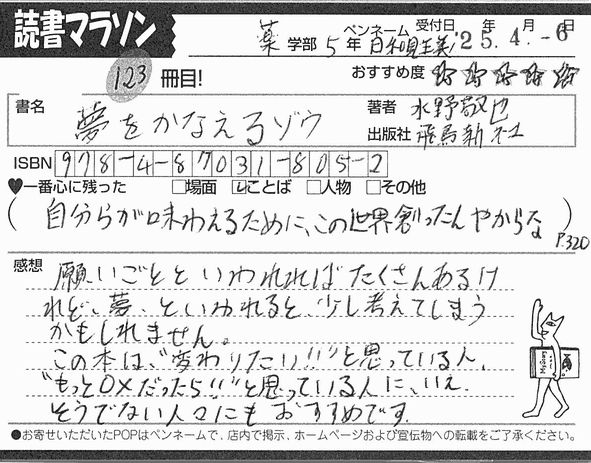 読書マラソン
薬 学部 5年 ペンネーム 日和見主義 受付日 '25年.4月.-6日
123 冊目!
おすすめ度 ☆☆☆☆☆
書名 夢をかなえるゾウ
著者 水野敬也
出版社 飛鳥新社
ISBN 978-4-87031-805-2
♥一番心に残った □場面 ☑ことば □人物 □その他
(自分らが味わえるために、この世界創ったんやからな) P.320
感想
願いごとといわれればたくさんあるけ
れど、夢、といわれると、少し考えてしまう
かもしれません。
この本は、"変わりたい!!"と思っている人、
"もっと○×だったら!!"と思っている人に、いえ
そうでない人々にもおすすめです。
●お寄せいただいたPOPはペンネームで、店内で掲示、ホームページおよび宣伝物への転載をご了承ください。